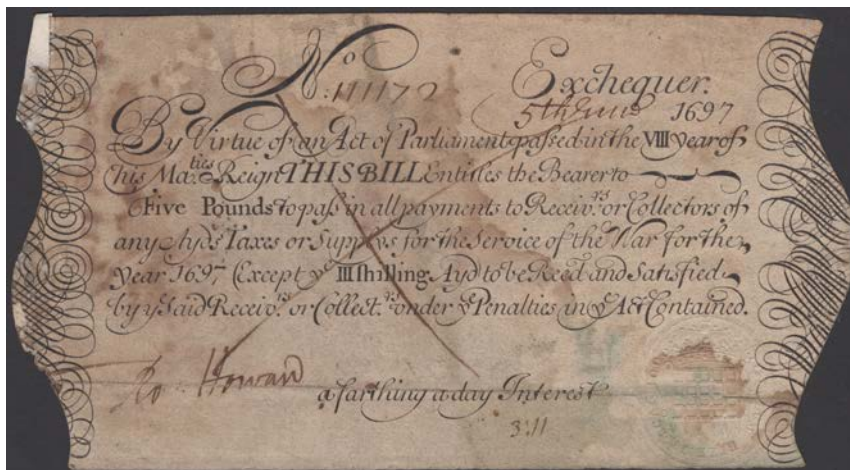 No Exchequer.
:111170 5th June 1697
By Virtue of an Act of Parliament passed in the VIII year of
his Ma.ties Reign THIS BILL Entitles the Bearer to
Five Pounds to pass in all payments to Receiv.rs or Collectors of
any Ayds Taxes or Supplys for the Service of the War for the
year 1697 (Except ye III shilling Ayd to be Reced and Satisfied
by ye said Receiv.rs or Collect.rs under ye Penalties in ye Act Contained.
Ro Howard
a farthing a day Interest
3:11